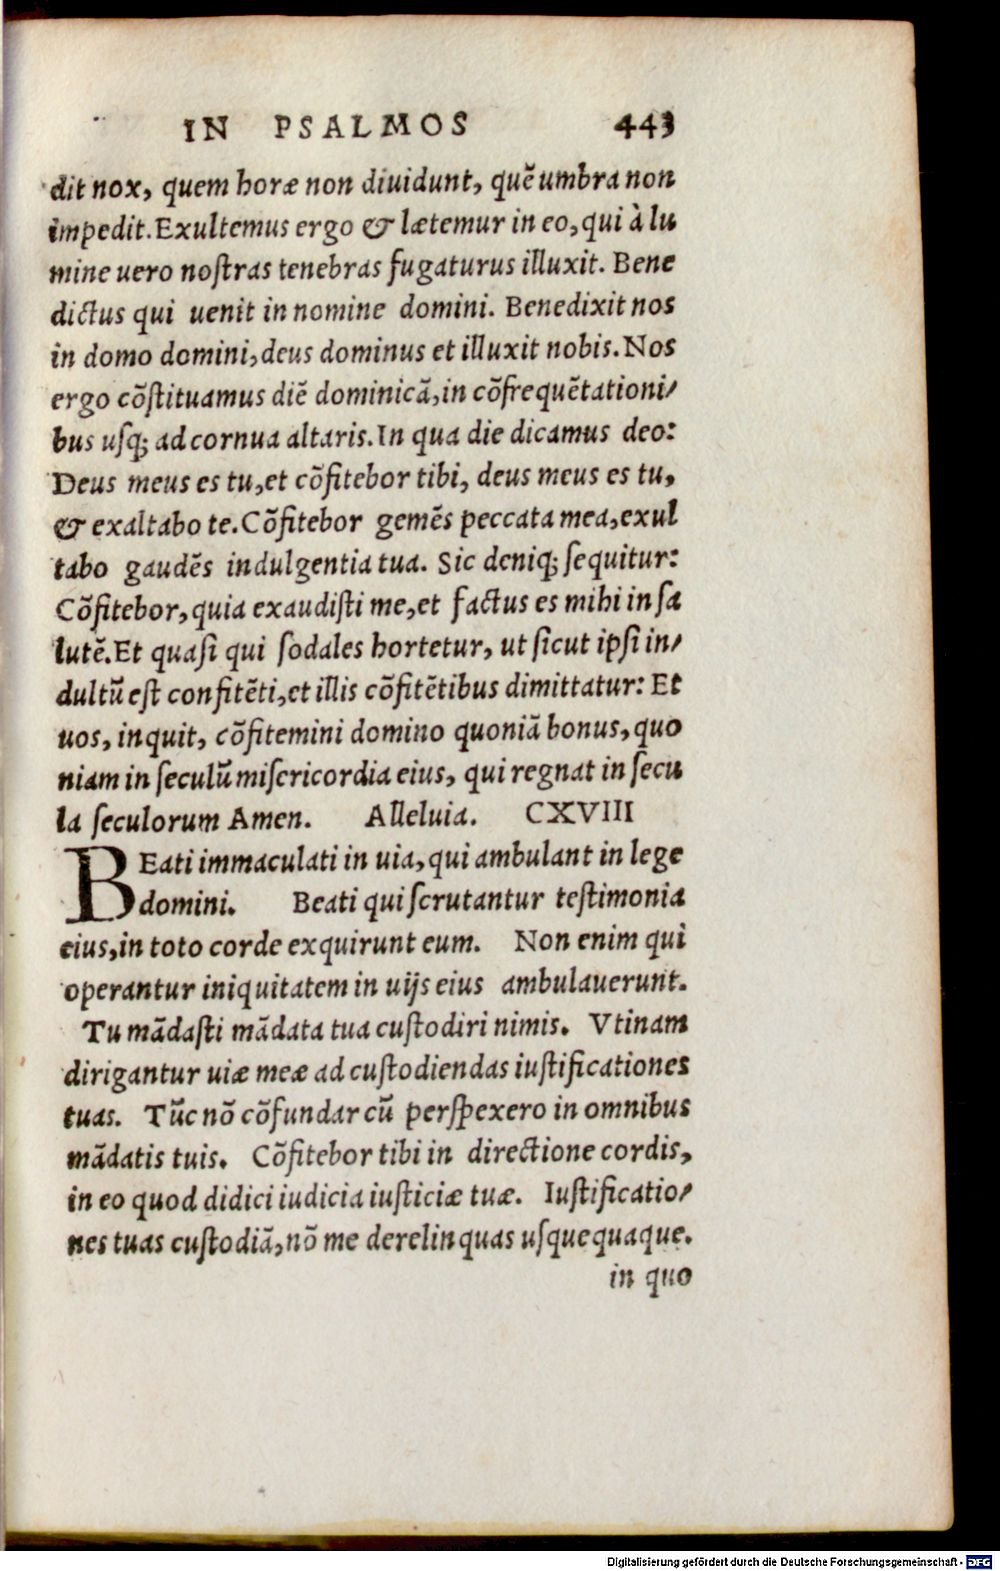 IN PSALMOS 443
dit nox, quem horæ non diuidunt, quẽ umbra non
impedit. Exultemus ergo & lætemur in eo, qui à lu
mine uero noſtras tenebras fugaturus illuxit. Bene
dictus qui uenit in nomine domini. Benedixit nos
in domo domini, deus dominus et illuxit nobis. Nos
ergo cõſtituamus diẽ dominicã, in cõfrequẽtationi/
bus uſq; ad cornua altaris. In qua die dicamus deo:
Deus meus es tu, et cõfitebor tibi, deus meus es tu,
& exaltabo te. Cõfitebor gemẽs peccata mea, exul
tabo gaudẽs indulgentia tua. Sic deniq; ſequitur:
Cõfitebor, quia exaudiſti me, et factus es mihi in ſa
lutẽ. Et quaſi qui ſodales hortetur, ut ſicut ipſi in/
dultũ eſt confitẽti, et illis cõfitẽtibus dimittatur: Et
uos, inquit, cõfitemini domino quoniã bonus, quo
niam in ſeculũ miſericordia eius, qui regnat in ſecu
la ſeculorum Amen. Alleluia. CXVIII
BEati immaculati in uia, qui ambulant in lege
domini. Beati qui ſcrutantur teſtimonia
eius, in toto corde exquirunt eum. Non enim qui
operantur iniquitatem in uijs eius ambulauerunt.
Tu mãdaſti mãdata tua cuſtodiri nimis. Vtinam
dirigantur uiæ meæ ad cuſtodiendas iuſtificationes
tuas. Tũc nõ cõfundar cũ perſpexero in omnibus
mãdatis tuis. Cõfitebor tibi in directione cordis,
in eo quod didici iudicia iuſticiæ tuæ. Iuſtificatio/
nes tuas cuſtodiã, nõ me derelinquas uſquequaque.
in quo
Digitalisierung gefördert durch die Deutsche Forschungsgemeinschaft - DFG